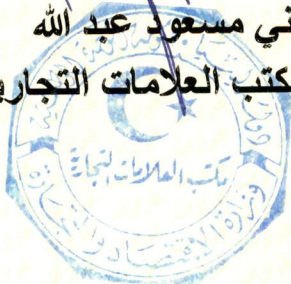 ني مسعود عبد الله
كتب العلامات التجارو
مكتب العلامات التجارة
وزارة الإقتصاد والتجارة